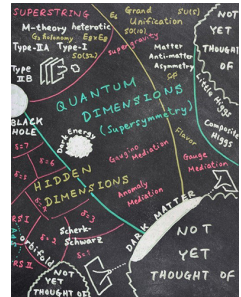 SUPERSTRING
M-theory heterotic
G₂ holonomy E8×E8
Type-IIA Type-I
SO(32)
Type
IIB
E6
Grand
Unification
SO(10)
SU(5)
Supergravity
Matter
Anti-matter
Asymmetry
NOT
YET
THOUGHT
OF
Little Higgs
Composite
Higgs
QUANTUM
DIMENSIONS
(Supersymmetry)
Flavor
BLACK
HOLE
Dark Energy
Gaugino
Mediation
Gauge
Mediation
Anomaly
Mediation
HIDDEN
DIMENSIONS
δ=7
δ=6
δ=3
Scherk-
Schwarz
RS I
RS II
Orbifold
DARK MATTER
NOT
YET
THOUGHT OF
NOT
YET
THOUGHT OF